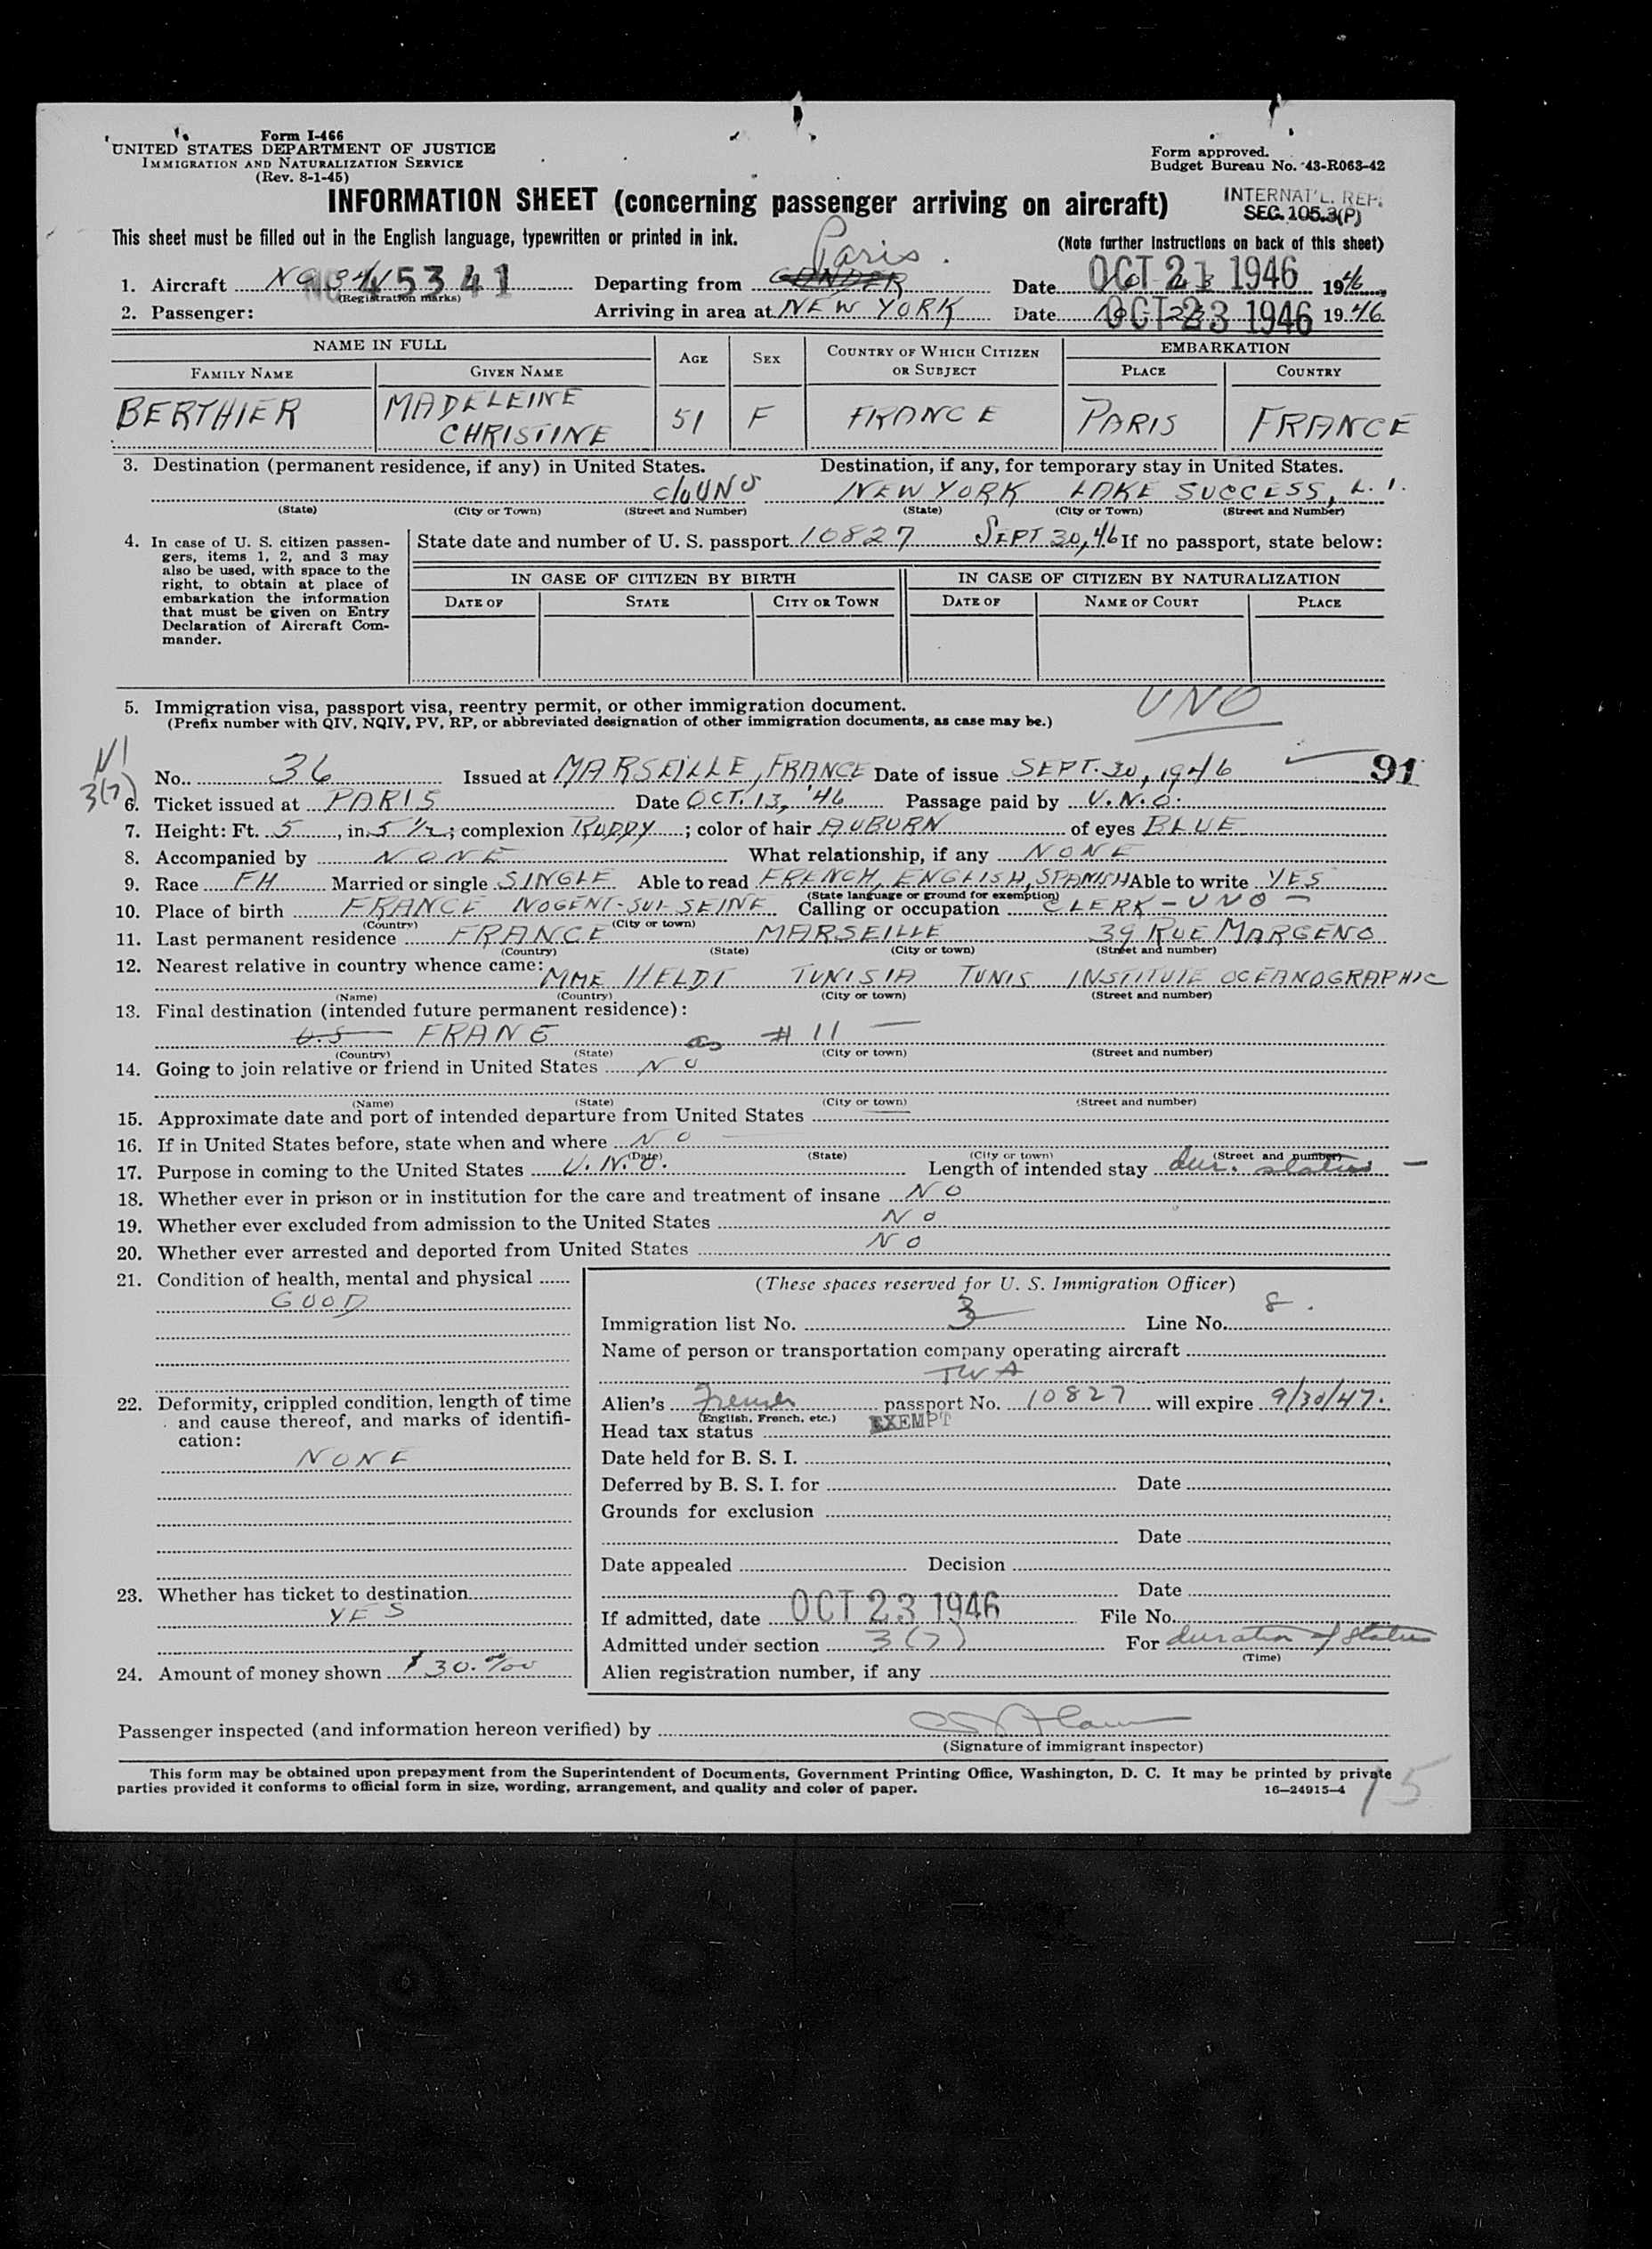 Form I-466
UNITED STATES DEPARTMENT OF JUSTICE
IMMIGRATION AND NATURALIZATION SERVICE
(Rev. 8-1-45)
Form approved.
Budget Bureau No. 43-R063-42
INFORMATION SHEET (concerning passenger arriving on aircraft)
INTERNAT'L. REP.
SEC. 105.3(P)
This sheet must be filled out in the English language, typewritten or printed in ink.
(Note further instructions on back of this sheet)
Paris.
1. Aircraft 45341 Departing from GANDER Date OCT 21 1946 1946
(Registration marks)
2. Passenger: Arriving in area at NEW YORK Date OCT 23 1946 1946
NAME IN FULL AGE SEX COUNTRY OF WHICH CITIZEN OR SUBJECT EMBARKATION
FAMILY NAME GIVEN NAME PLACE COUNTRY
BERTHIER MADELEINE CHRISTINE 51 F FRANCE PARIS FRANCE
3. Destination (permanent residence, if any) in United States. Destination, if any, for temporary stay in United States.
c/o UNO NEW YORK LAKE SUCCESS, L.I.
(State) (City or Town) (Street and Number) (State) (City or Town) (Street and Number)
4. In case of U. S. citizen passengers, items 1, 2, and 3 may also be used, with space to the right, to obtain at place of embarkation the information that must be given on Entry Declaration of Aircraft Commander.
State date and number of U. S. passport 10827 SEPT 30, 46 If no passport, state below:
IN CASE OF CITIZEN BY BIRTH IN CASE OF CITIZEN BY NATURALIZATION
DATE OF STATE CITY OR TOWN DATE OF NAME OF COURT PLACE
UNO
5. Immigration visa, passport visa, reentry permit, or other immigration document.
(Prefix number with QIV, NQIV, PV, RP, or abbreviated designation of other immigration documents, as case may be.)
VI
3(7)
No. 36 Issued at MARSEILLE, FRANCE Date of issue SEPT. 30, 1946 91
6. Ticket issued at PARIS Date OCT. 13, '46 Passage paid by U.N.O.
7. Height: Ft. 5, in. 5 1/2; complexion RUDDY; color of hair AUBURN of eyes BLUE
8. Accompanied by NONE What relationship, if any NONE
9. Race FH Married or single SINGLE Able to read FRENCH, ENGLISH, SPANISH Able to write YES
(State language or ground for exemption)
10. Place of birth FRANCE NOGENT-SUR-SEINE Calling or occupation CLERK - UNO -
(Country) (City or town)
11. Last permanent residence FRANCE MARSEILLE 39 RUE MARGENO
(Country) (State) (City or town) (Street and number)
12. Nearest relative in country whence came: MME HELDT TUNISIA TUNIS INSTITUTE OCEANOGRAPHIC
(Name) (Country) (City or town) (Street and number)
13. Final destination (intended future permanent residence):
U.S FRANE as # 11 —
(Country) (State) (City or town) (Street and number)
14. Going to join relative or friend in United States NO
(Name) (State) (City or town) (Street and number)
15. Approximate date and port of intended departure from United States —
16. If in United States before, state when and where NO
(Date) (State) (City or town) (Street and number)
17. Purpose in coming to the United States U.N.O. Length of intended stay dur. status —
18. Whether ever in prison or in institution for the care and treatment of insane NO
19. Whether ever excluded from admission to the United States NO
20. Whether ever arrested and deported from United States NO
21. Condition of health, mental and physical
GOOD
22. Deformity, crippled condition, length of time and cause thereof, and marks of identification:
NONE
23. Whether has ticket to destination
YES
24. Amount of money shown $30.00/00
(These spaces reserved for U. S. Immigration Officer)
Immigration list No. 3 Line No. 8.
Name of person or transportation company operating aircraft
TWA
Alien's French passport No. 10827 will expire 9/30/47.
(English, French, etc.)
Head tax status EXEMPT
Date held for B. S. I.
Deferred by B. S. I. for Date
Grounds for exclusion
Date
Date appealed Decision
Date
If admitted, date OCT 23 1946 File No.
Admitted under section 3(7) For duration of status
(Time)
Alien registration number, if any
Passenger inspected (and information hereon verified) by
(Signature of immigrant inspector)
This form may be obtained upon prepayment from the Superintendent of Documents, Government Printing Office, Washington, D. C. It may be printed by private
parties provided it conforms to official form in size, wording, arrangement, and quality and color of paper.
16—24915-4
15